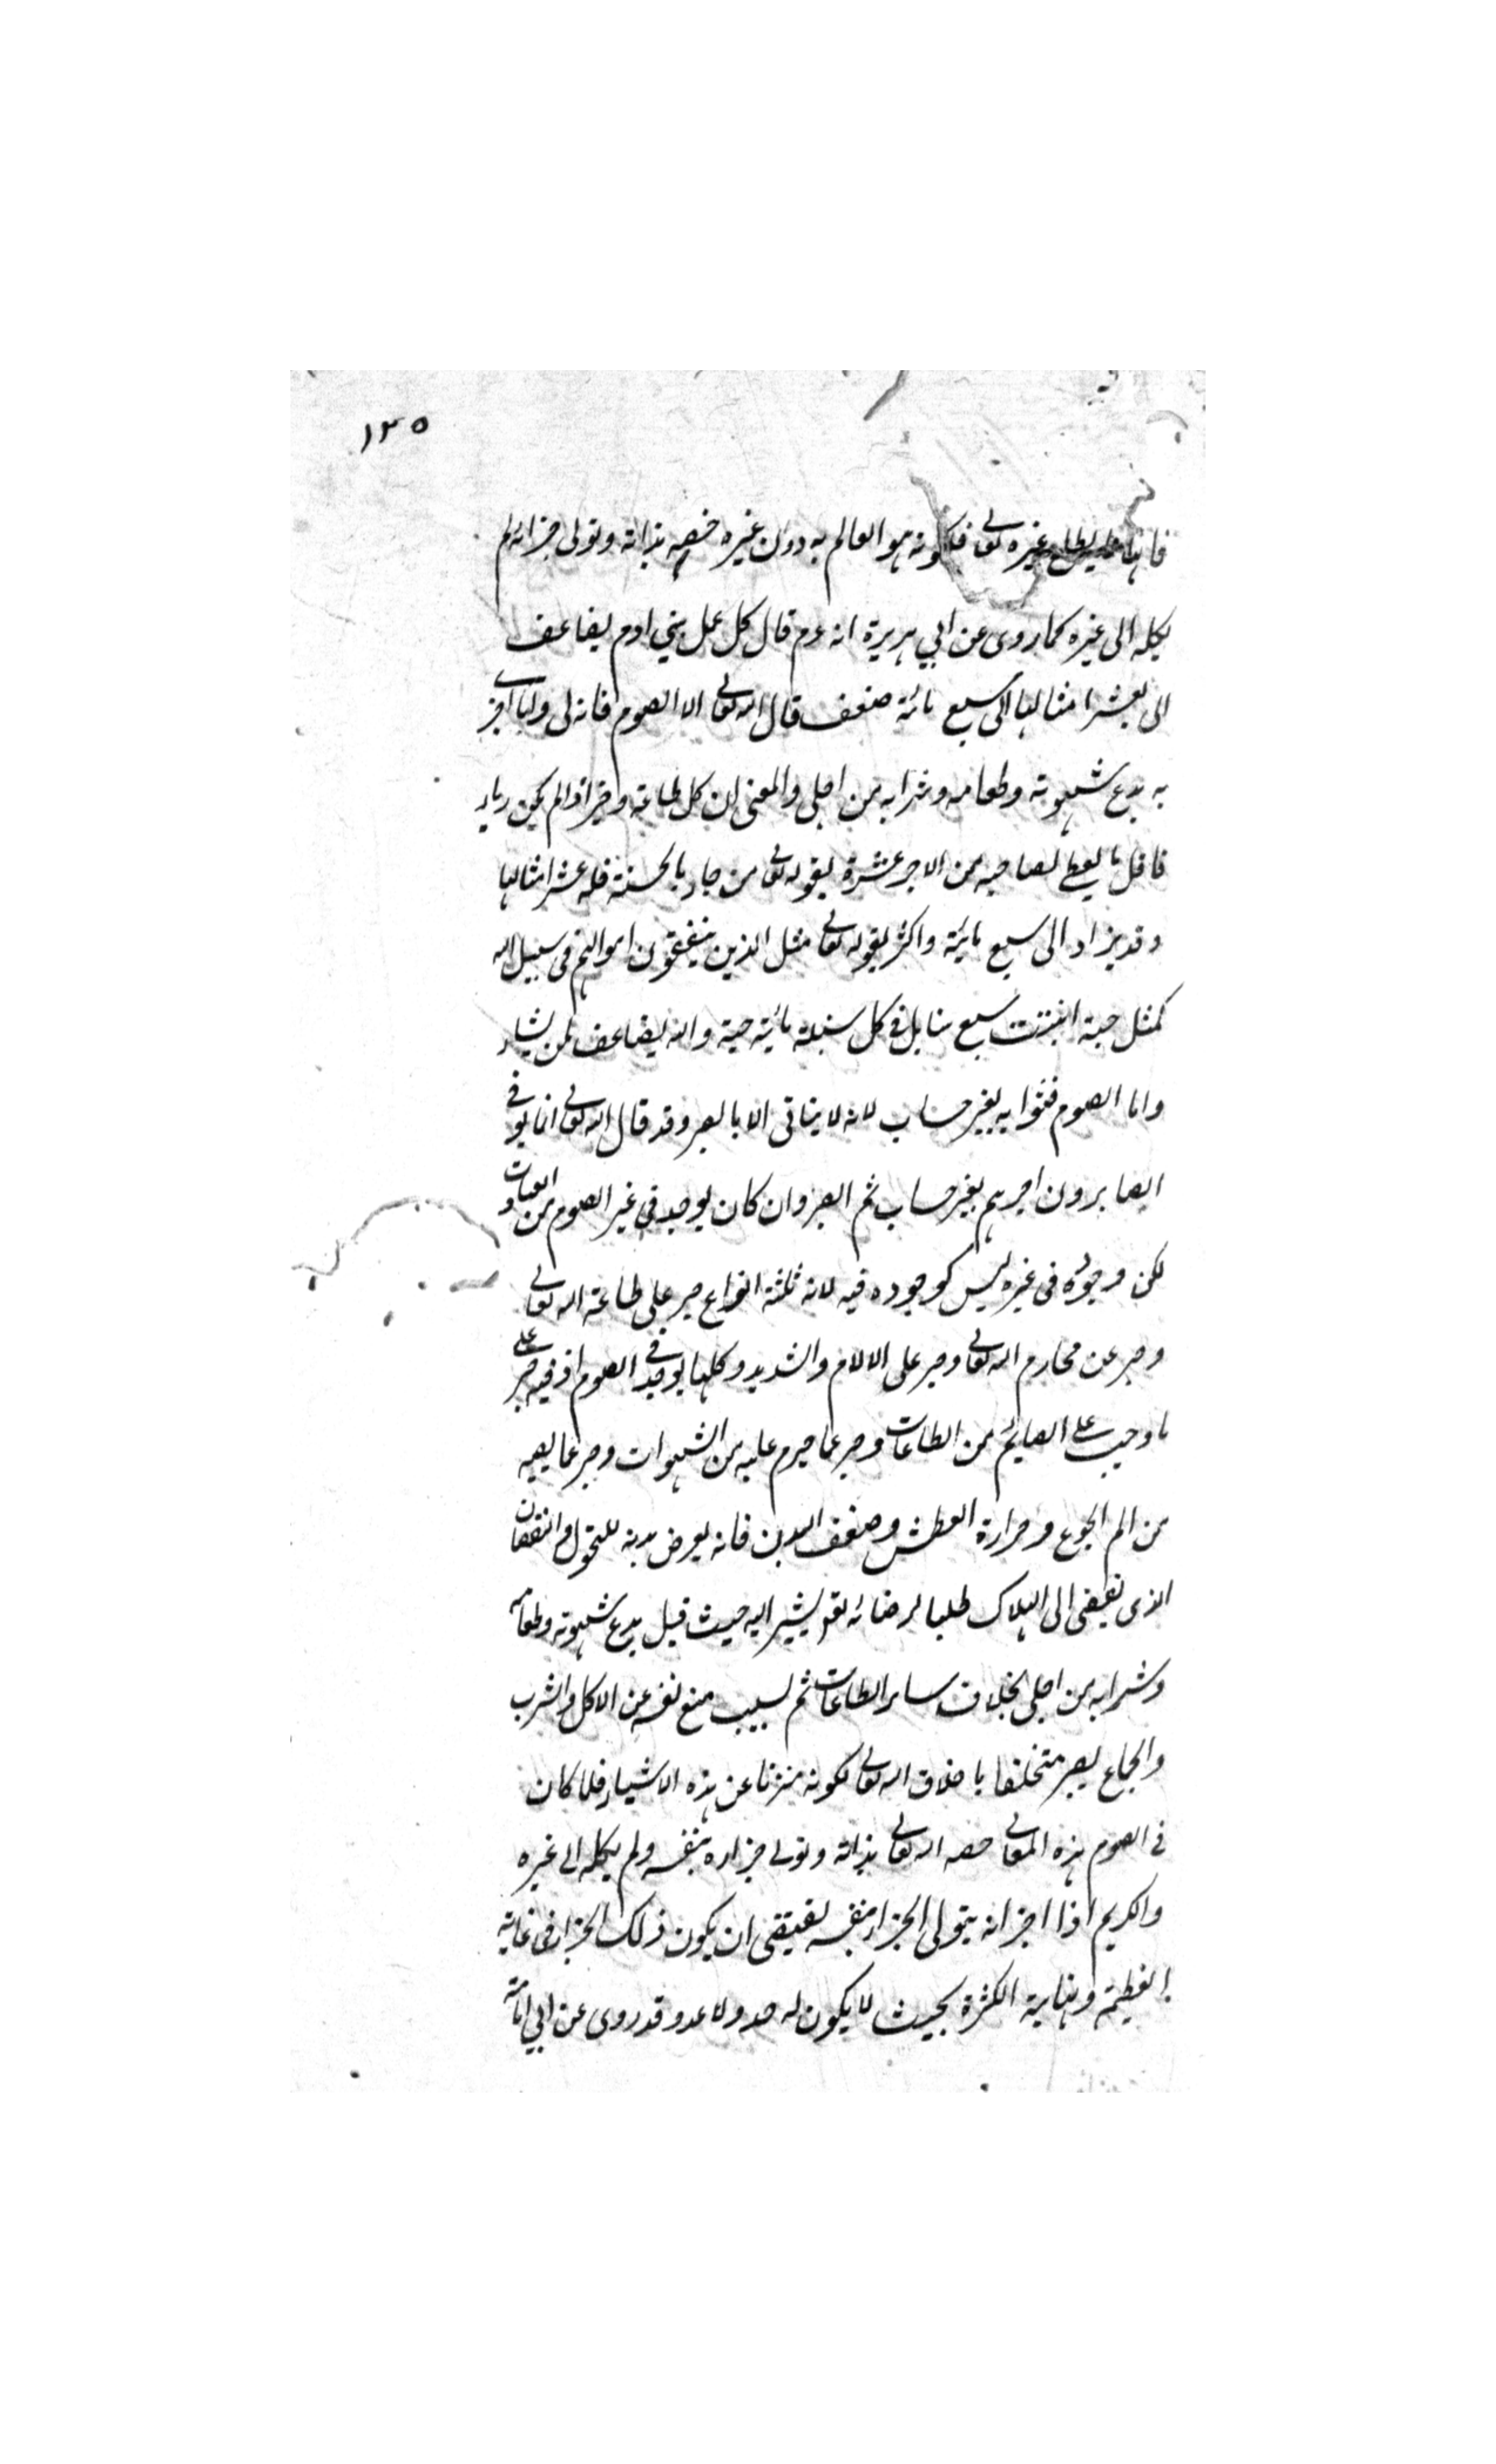 ١٣٥
فانها ليطلع غيره تعالى فلكونه هو العالم به دون غيره خصه بذاته وتولى جزائه لم
يكله الى غيره كما روى عن ابي هريرة انه عم قال كل عمل بني ادم يضاعف
الى بعشر امثالها الى سبع مائة ضعف قال الله تعالى الا الصوم فانه لى وانا اجزى
به يدع شهوته وطعامه وشرابه من اجلى والمعنى ان كل طاعة وخير اذا لم يكن رياء
فاقل ما يعطى لصاحبه من الاجر عشرة لقوله تعالى من جاء بالحسنة فله عشر امثالها
وقد يزاد الى سبع مائة واكثر لقوله تعالى مثل الذين ينفقون اموالهم فى سبيل الله
كمثل حبة انبتت سبع سنابل فى كل سنبلة مائة حبة والله يضاعف لمن يشاء
واما الصوم فثوابه بغير حساب لانه لا يتاتى الا بالصبر وقد قال الله تعالى انما يوفى
الصابرون اجرهم بغير حساب ثم الصبر وان كان يوجد فى غير الصوم من العبادات
لكن وجوده فى غيره ليس كوجوده فيه لانه ثلثة انواع صبر على طاعة الله تعالى
وصبر عن محارم الله تعالى وصبر على الالام والشديد وكلها يوجد فى الصوم اذ فيه صبر على
ما وجب على الصايم من الطاعات وصبر عما حرم عليه من الشهوات وصبر عما يصيبه
من الم الجوع وحرارة العطش وضعف البدن فانه يعرض بدنه للنحول والنقصان
الذى يفضى الى الهلاك طلبا لرضائه تع يشير اليه حيث قيل يدع شهوته وطعامه
وشرابه من اجلى بخلاف سائر الطاعات ثم لسبب منع نفسه عن الاكل والشرب
والجماع يصير متخلقا باخلاق الله تعالى لكونه منزها عن هذه الاشياء فلما كان
فى الصوم هذه المعانى خصه الله تعالى بذاته وتولى جزاءه بنفسه ولم يكله الى غيره
والكريم اذا اخبر انه يتولى الجزاء بنفسه يقتضى ان يكون ذلك الجزاء فى غاية
العظمة ونهاية الكثرة بحيث لا يكون له حد ولا عد وقد روى عن ابي امامة